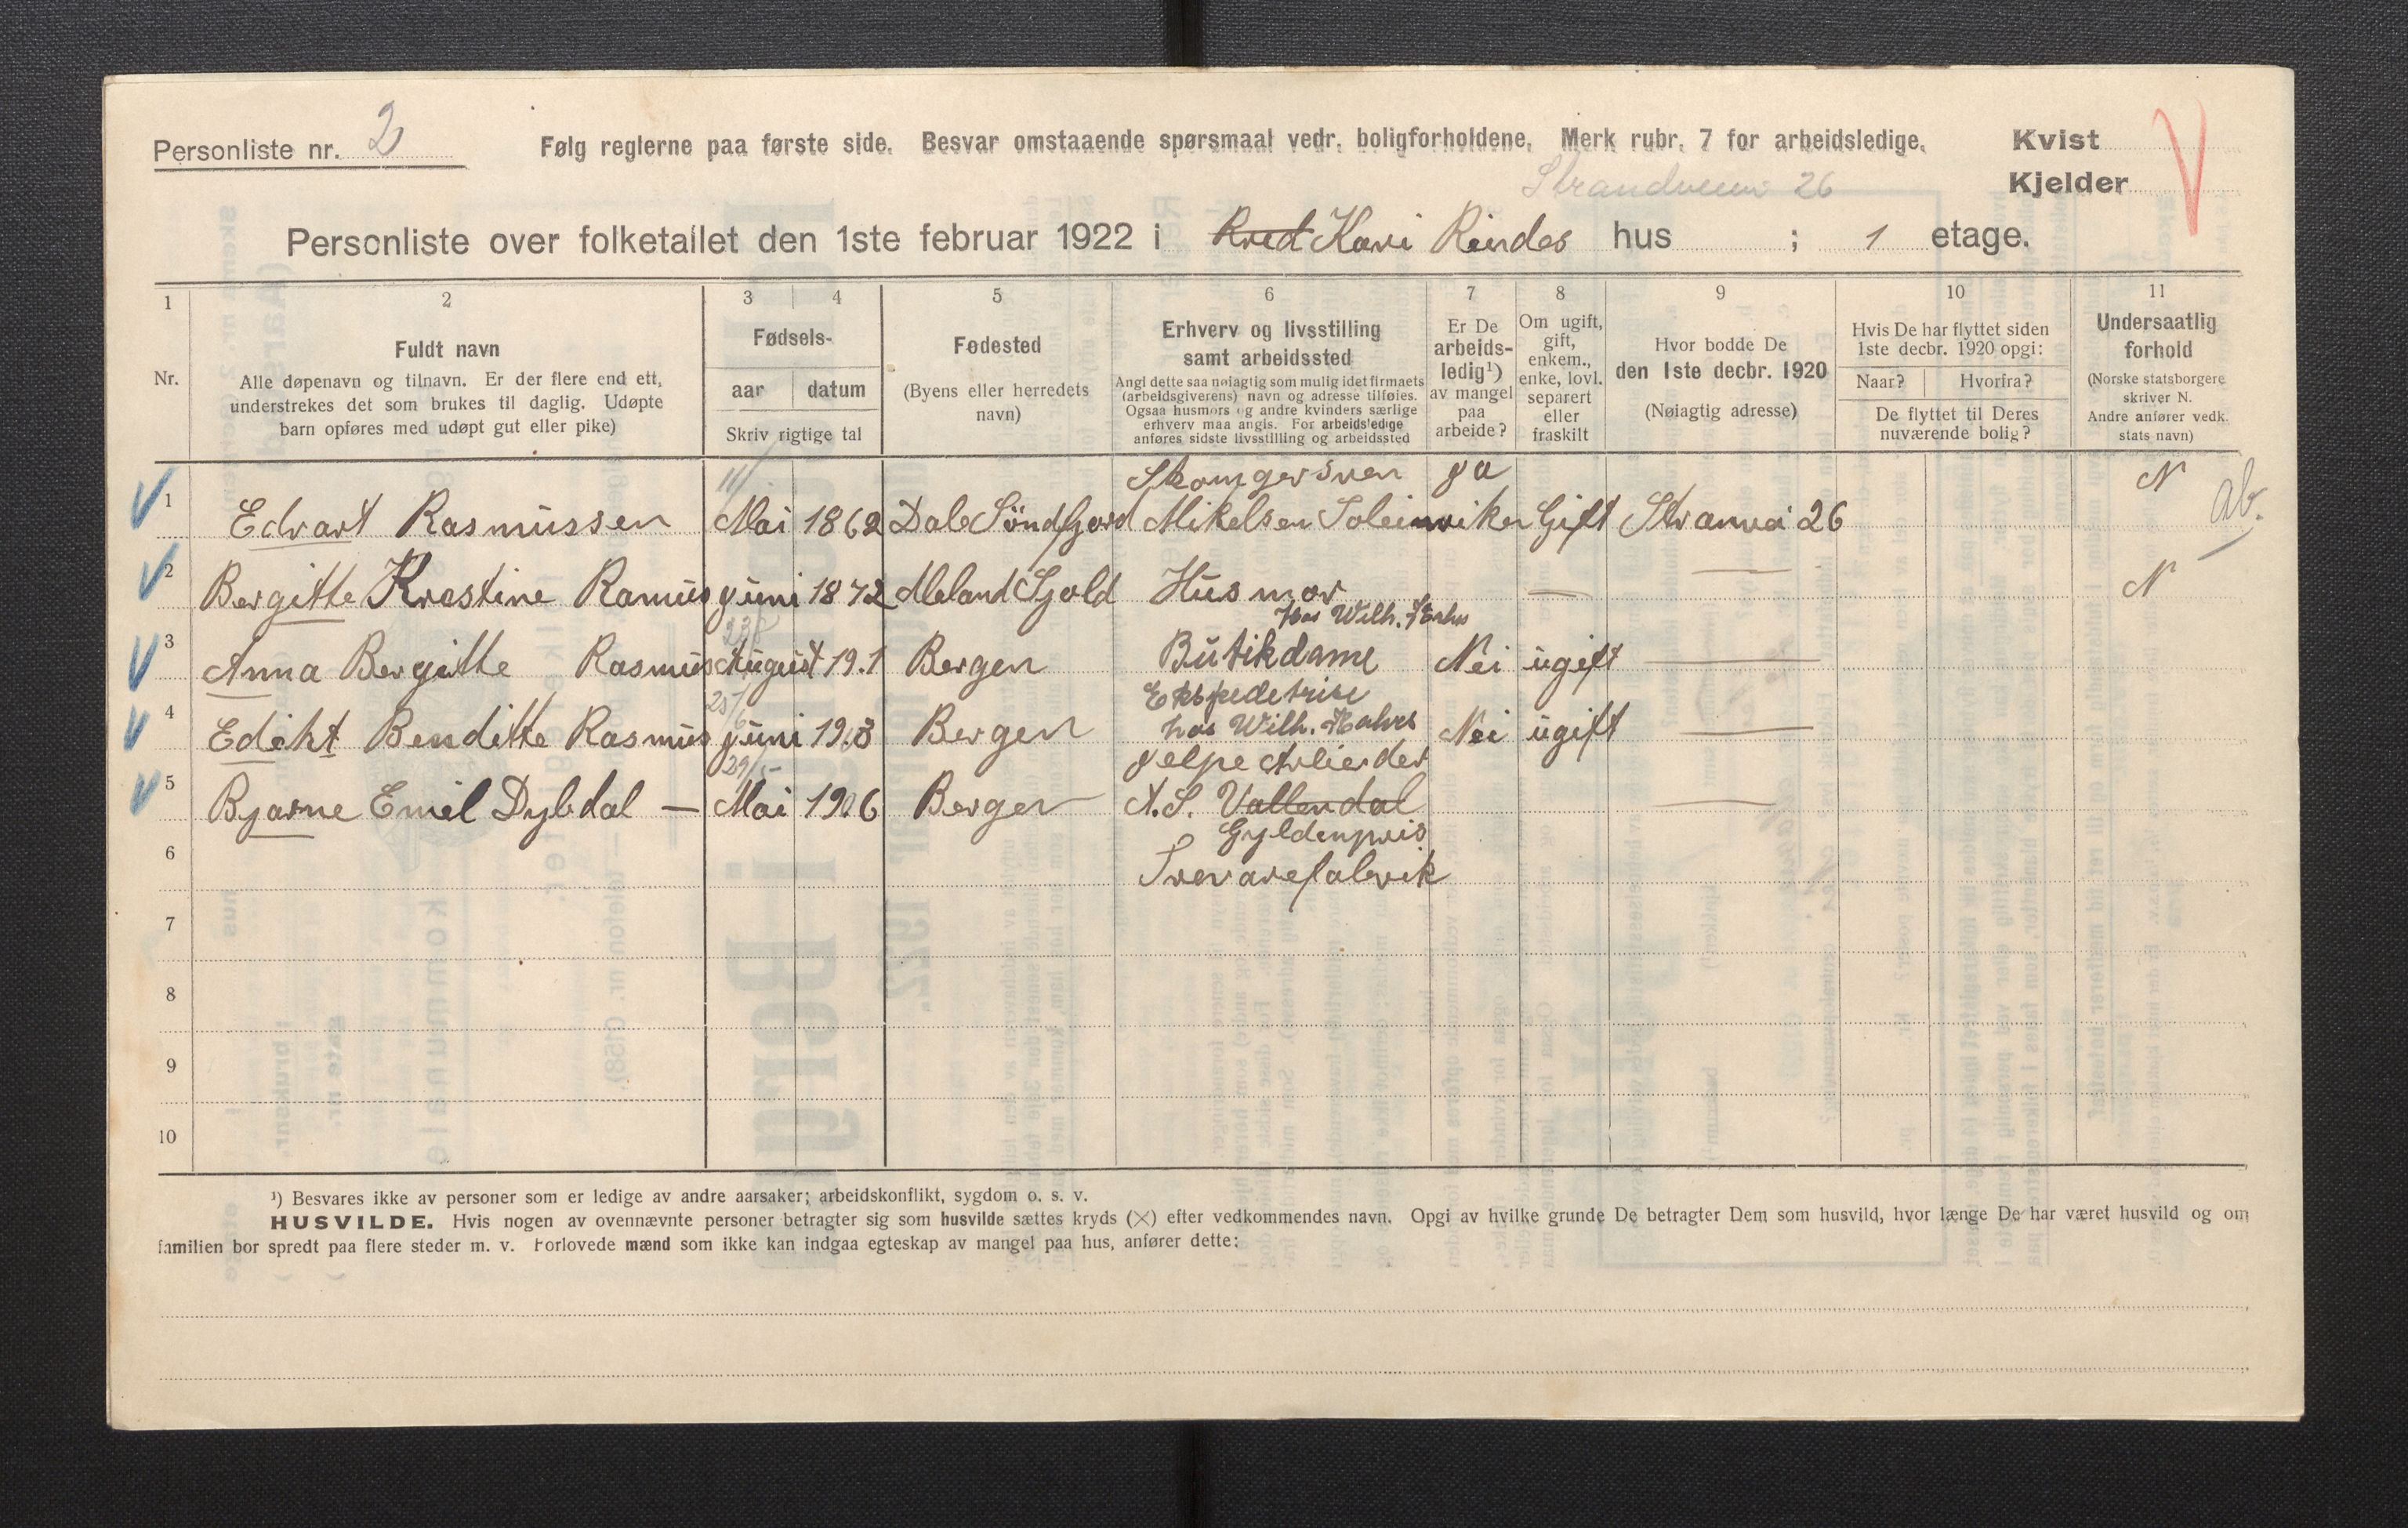 Personliste nr. 2
Følg reglerne paa første side. Besvar omstaaende spørsmaal vedr. boligforholdene. Merk rubr. 7 for arbeidsledige.
Kvist
Kjelder
Strandveien 26
Personliste over folketallet den 1ste februar 1922 i Kari Rindes hus ; 1 etage.
1 2 3 4 5 6 7 8 9 10 11
Nr.
Fuldt navn
Alle døpenavn og tilnavn. Er der flere end ett,
understrekes det som brukes til daglig. Udøpte
barn opføres med udøpt gut eller pike)
Fødsels-
aar datum
Skriv rigtige tal
Fødested
(Byens eller herredets
navn)
Erhverv og livsstilling
samt arbeidssted
Angi dette saa nøiagtig som mulig idet firmaets
(arbeidsgiverens) navn og adresse tilføies.
Ogsaa husmors og andre kvinders særlige
erhverv maa angis. For arbeidsledige
anføres sidste livsstilling og arbeidssted
Er De
arbeids-
ledig¹)
av mangel
paa
arbeide?
Om ugift,
gift,
enkem.,
enke, lovl.
separert
eller
fraskilt
Hvor bodde De
den 1ste decbr. 1920
(Nøiagtig adresse)
Hvis De har flyttet siden
1ste decbr. 1920 opgi:
Naar? Hvorfra?
De flyttet til Deres
nuværende bolig?
Undersaatlig
forhold
(Norske statsborgere
skriver N.
Andre anfører vedk.
stats navn)
11/
Skomgersven ja N
1 Edvart Rasmussen Mai 1862 Dale Söndfjord Mikelsen Soleimviken Gift Stranvei 26
ab.
2 Bergitte Krestine Ramus juni 1872 Meland Hus mor — — N
Hos Wilh.
3 Anna Bergitte Rasmus August 19.1 Bergen Butikdame Nei ugift —
25/6
Ekspedetrise
4 Edikt Benditte Rasmus juni 1903 Bergen hos Wilh. Nei ugift —
29/5
jelpe Arbeider
5 Bjarne Emil Dybdal — Mai 1906 Bergen A.S. Vallendal —
Gyldenpris
6 Trevarefabrik
7
8
9
10
¹) Besvares ikke av personer som er ledige av andre aarsaker; arbeidskonflikt, sygdom o. s. v.
HUSVILDE. Hvis nogen av ovennævnte personer betragter sig som husvilde sættes kryds (×) efter vedkommendes navn. Opgi av hvilke grunde De betragter Dem som husvild, hvor længe De har været husvild og om
familien bor spredt paa flere steder m. v. Forlovede mænd som ikke kan indgaa egteskap av mangel paa hus, anfører dette: